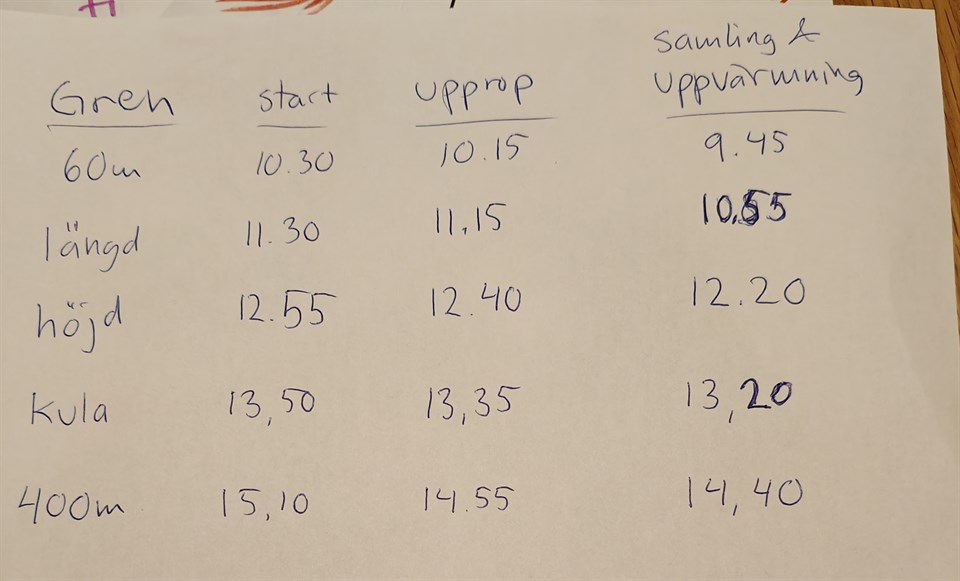 Gren start upprop samling & uppvärmning
60m 10.30 10.15 9.45
längd 11.30 11.15 10.55
höjd 12.55 12.40 12.20
Kula 13,50 13,35 13,20
400m 15,10 14.55 14,40